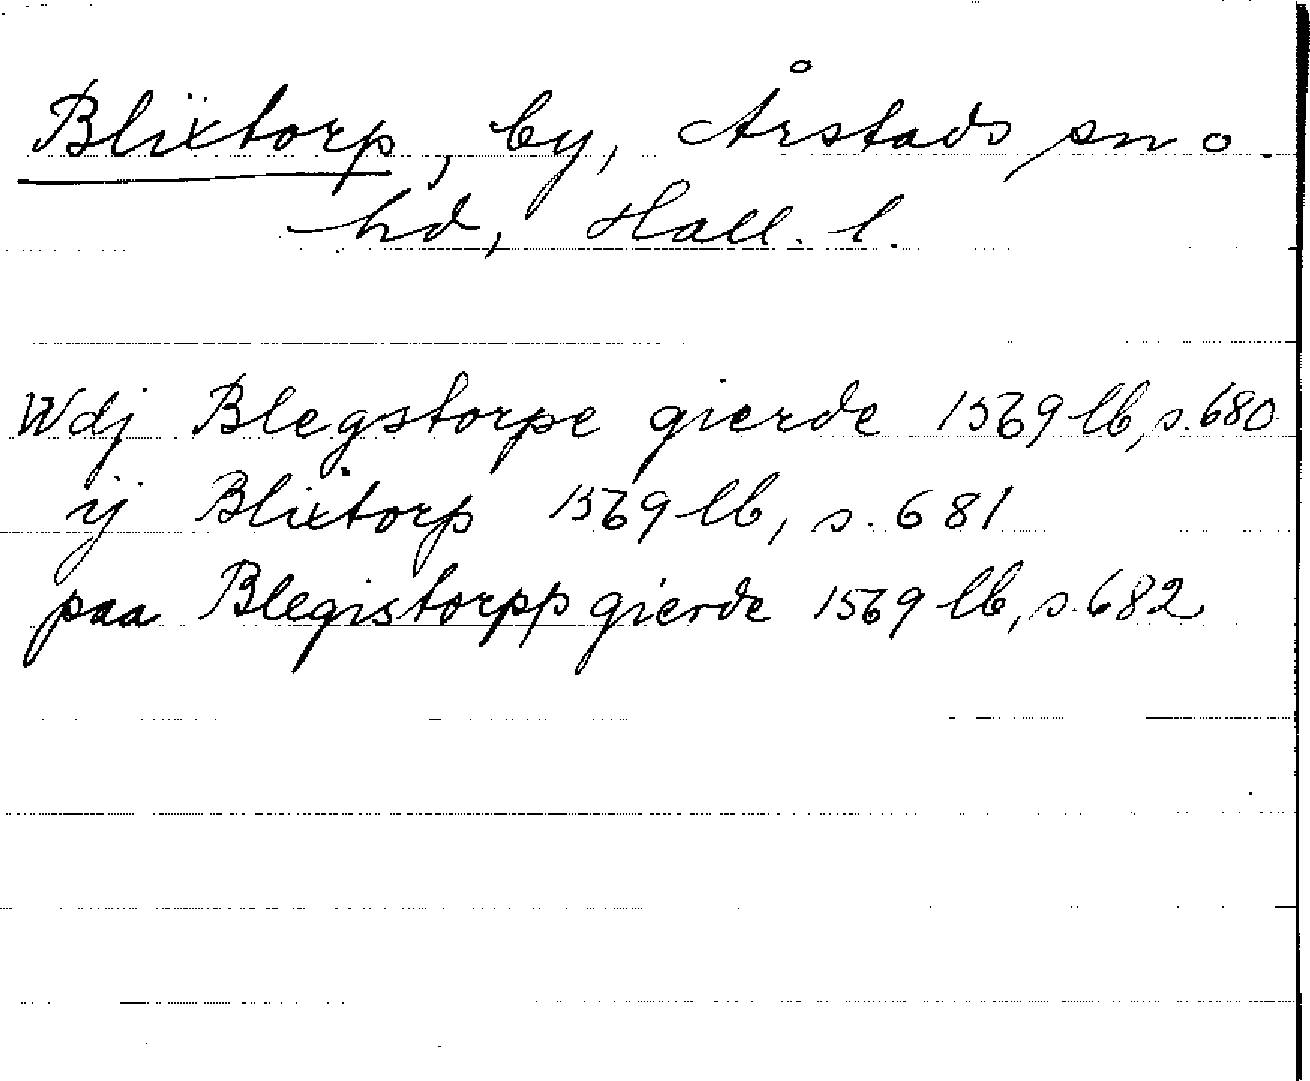 Blixtorp, by, Årstads sn o.
hd, Hall. l.
Wdj Blegstorpe gierde 1569 lb, s. 680
ij Blixtorp 1569 lb, s. 681
paa Blegistorpp gierde 1569 lb, s. 682